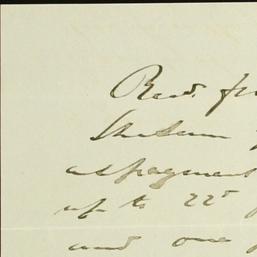 Recd. fr
the sum
as payment
up to 22d
and one